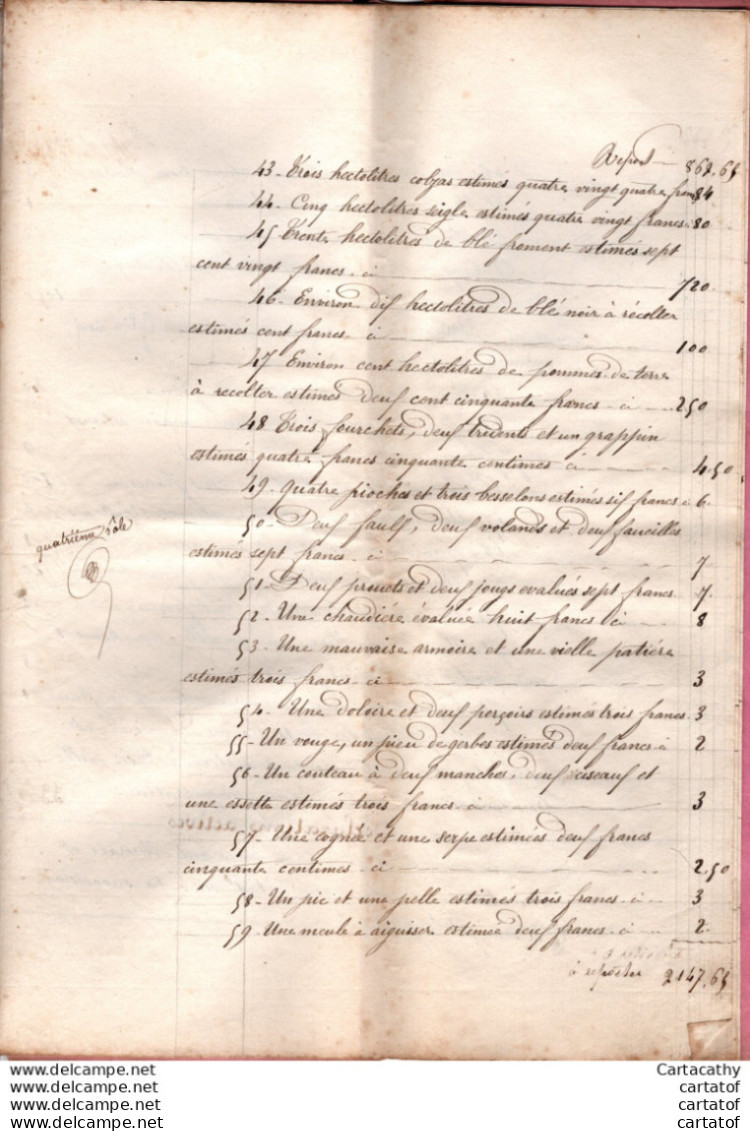 Report 862.65
43 - Trois hectolitres colzas estimés quatre vingt quatre francs 84
44 - Cinq hectolitres seigle estimés quatre vingt francs 80
45 Trente hectolitres de blé froment estimés sept
cent vingt francs ci 720
46 - Environ dix hectolitres de blé noir à récolter
estimés cent francs ci 100
47 Environ cent hectolitres de pommes de terre
à recolter estimés deux cent cinquante francs ci 250
48 Trois fourchets, deux tridents et un grappin
estimés quatre francs cinquante centimes ci 4.50
49 - Quatre pioches et trois besselons estimés six francs ci 6.
50 - Deux faulx, deux volands et deux faucilles
estimés sept francs ci 7
quatrième rôle
51 - Deux et deux jougs evalués sept francs 7.
52 - Une chaudiére évaluée huit francs ci 8
53 - Une mauvaise armoire et une vielle patiére
estimés trois francs ci 3
54 - Une doloire et deux perçoirs estimés trois francs. 3
55 - Un vouge, un pieu de gerbes estimés deux francs ci 2
56 - Un couteau à deux manches, deux ciseaux et
une essette estimés trois francs ci 3
57 - Une cognée et une serpe estimées deux francs
cinquante centimes ci 2.50
58 - Un pic et une pelle estimés trois francs ci 3
59 - Une meule à aiguiser estimée deux francs ci 2.
à reporter 2147.65
www.delcampe.net
www.delcampe.net
www.delcampe.net
www.delcampe.net
Cartacathy
cartatof
cartatof
cartatof